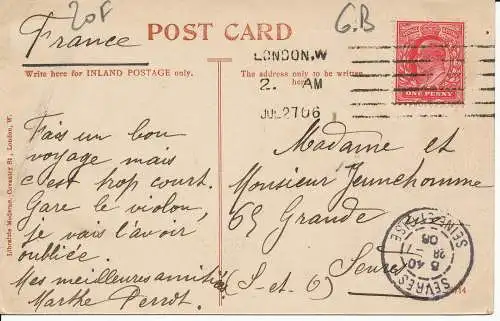 20F
G.B
France
POST CARD
LONDON.W
2. AM
JUL 27 06
ONE PENNY
Write here for INLAND POSTAGE only.
The address only to be written here
Fais un bon
voyage mais
c'est trop court.
Gare le violon,
Je vais l'avoir
oubliée.
Mes meilleures amitiés
Marthe Perrot.
Madame et
Monsieur Jeunehomme
65 Grande rue
Sevres
(S-et-O)
SEVRES
SEINE-ET-OISE
5 40
28 - 7
06
Librairie Moderne, Coventry St., London, W.